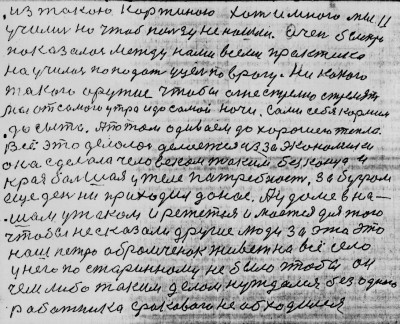 из такою картиною хоть и много мы и
учили но чтоб пользу не нашли. Очен быстро
показалос между нами всеми практика
научилис попадат у цел по врагу. Ни какого
такого оружие чтобы с неструмно стрелят
мы от самого утра и до самой ночи. Сами себя кормим
до сыты. А потом одиваем до хорошего тепла.
Всё это делолос делоется из за экономики
она сделала человеком таким без конца и
края большая у теле потребност. За бугром
еще ден ни приходил до нас. А и доме в на-
шом узком и режется и моется для того
чтобы не сказали другие люди за это это
наш петро абромченок живет на всё село
у него по старинному не было чтобы он
чем либо таким делом нуждался без одного
работника срокового не обходился